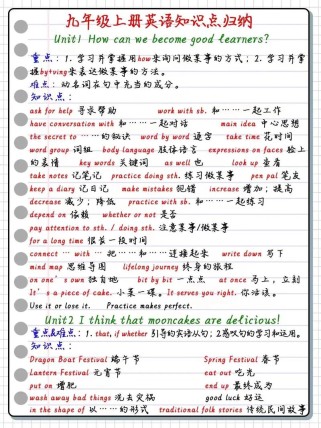 九年级上册英语知识点归纳
Unit1 How can we become good learners?
重点：1. 学习并掌握用how来询问做某事的方式；2. 学习并掌
握by+ving来表达做某事的方法。
难点：动名词在句中充当的成分。
知识点：
ask for help 寻求帮助 work with sb. 和……一起工作
have conversation with 和……一起对话 main idea 中心思想
the secret to ……的秘诀 word by word 逐字 take time 花时间
word group 词组 body language 肢体语言 expressions on faces 脸上
的表情 key words 关键词 as well 也 look up 查看
take notes 记笔记 practice doing sth. 练习做某事 pen pal 笔友
keep a diary 记日记 make mistakes 犯错 increase 增加；提高
decrease 减少；降低 practice with sb. 和……一起练习
depend on 依赖 whether or not 是否
pay attention to sth. / doing sth. 注意某事/做某事
for a long time 很长一段时间
connect … with … 把……和……连接起来 write down 写下
mind map 思维导图 lifelong journey 终身的旅程
on one's own 独自地 bit by bit 一点点 at once 马上，立刻
It's a piece of cake. 小菜一碟。It serves you right. 你活该。
Use it or lose it. Practice makes perfect.
Unit2 I think that mooncakes are delicious!
重点&难点：1. that, if whether 引导的宾语从句；2感叹句的学习和运用。
知识点：
Dragon Boat Festival 端午节 Spring Festival 春节
Lantern Festival 元宵节 eat out 吃光
put on 增肥 end up 最终成为
wash away bad things 洗去突祸 good luck 好运
in the shape of 以……的形式 traditional folk stories 传统民间故事